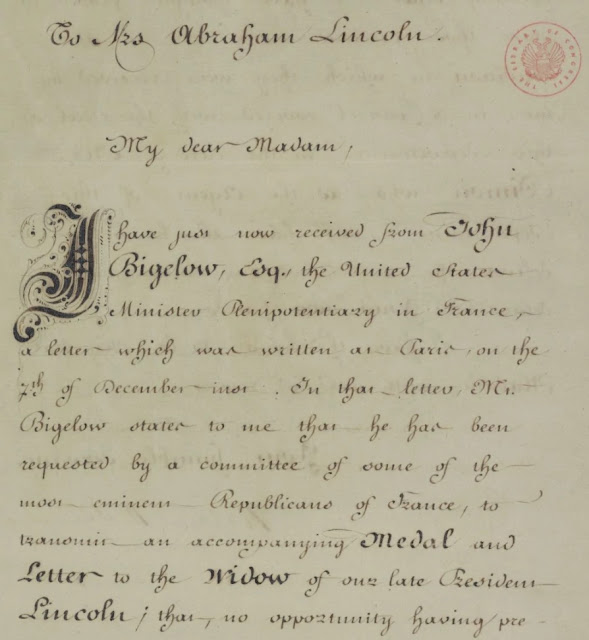 To Mrs Abraham Lincoln.
THE LIBRARY OF CONGRESS
My dear Madam,
I have just now received from John
Bigelow, Esq., the United States
Minister Plenipotentiary in France,
a letter which was written at Paris, on the
7th of December inst. In that letter, Mr.
Bigelow states to me that he has been
requested by a committee of some of the
most eminent Republicans of France, to
transmit an accompanying Medal and
Letter to the Widow of our late President
Lincoln; that, no opportunity having pre-